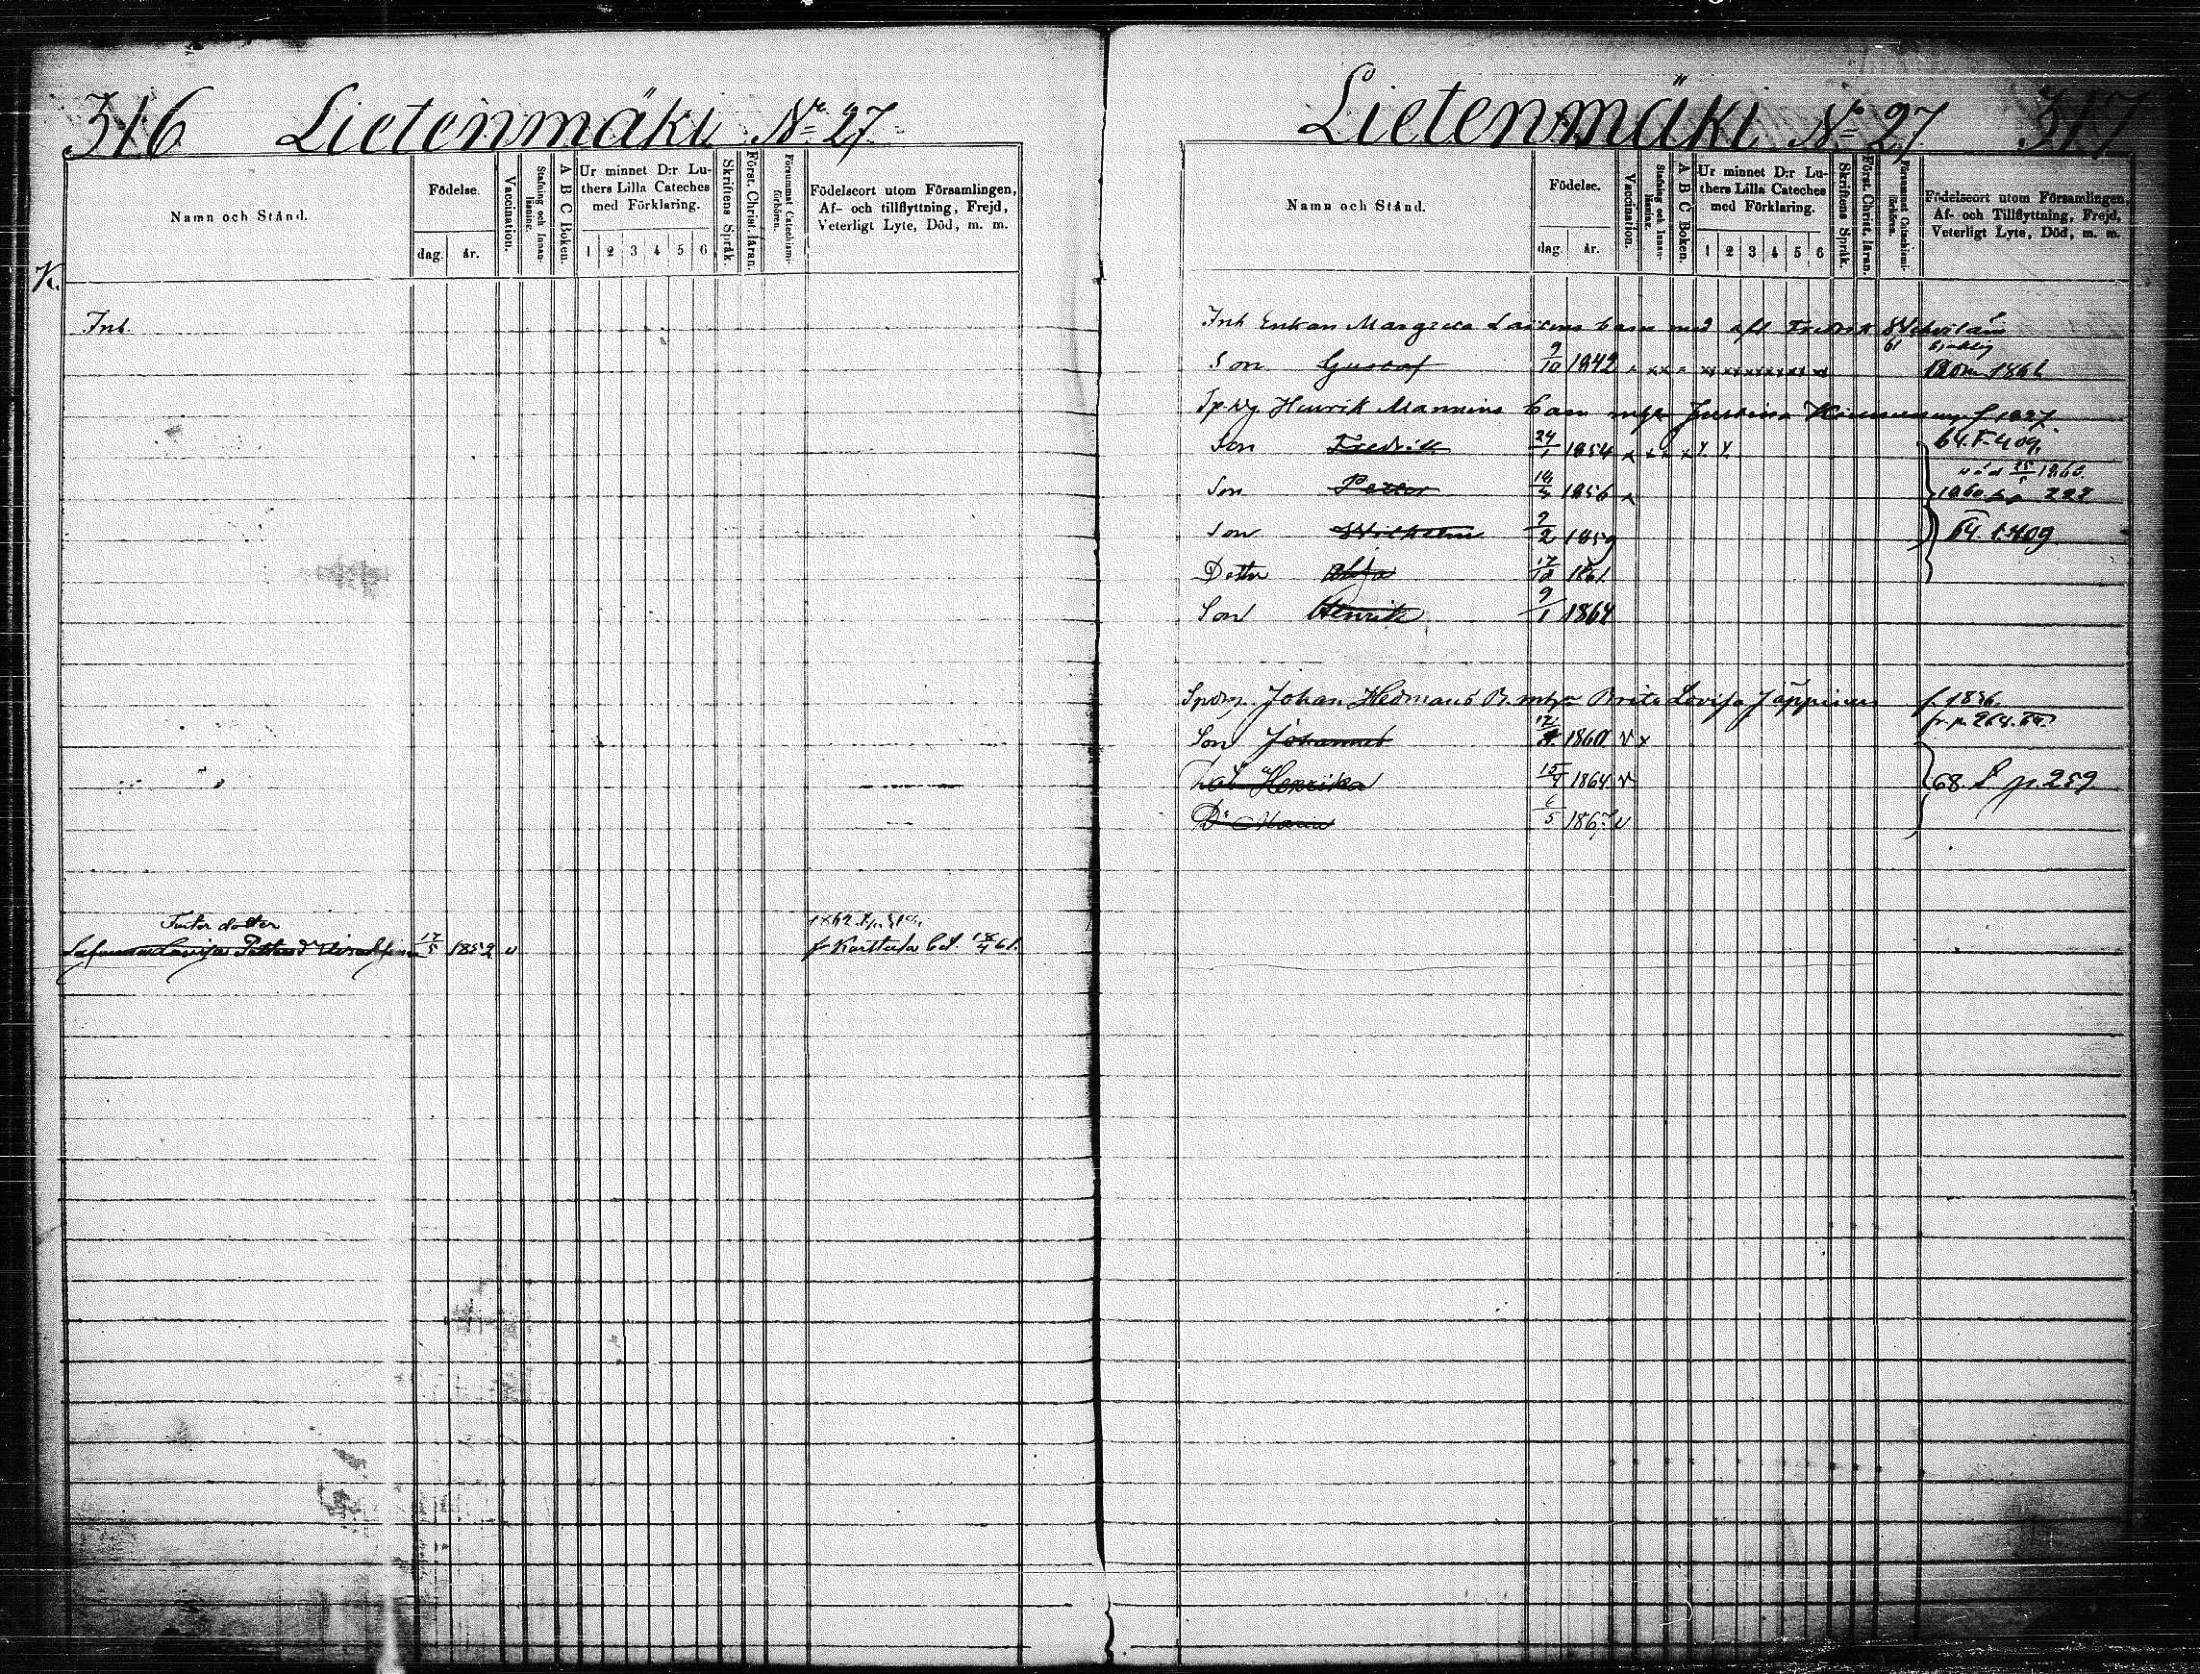 316 Lietenmäki No 27
Namn och Stånd.
Födelse.
dag. år.
Vaccination.
Stafning och Innanläsning.
A B C Boken.
Ur minnet D:r Luthers Lilla Cateches med Förklaring.
1 2 3 4 5 6
Skriftens Språk.
Först. Christ. läran.
Försummat Catechismiförhören.
Födelseort utom Församlingen,
Af- och tillflyttning, Frejd,
Veterligt Lyte, Död, m. m.
K.
Inh.
dotter
Lovisa 17/5 1852 v f. Karttula bet. 18/4 61.
Lietenmäki No 27 317
Namn och Stånd.
Födelse.
dag. år.
Vaccination.
Stafning och Innanläsning.
A B C Boken.
Ur minnet D:r Luthers Lilla Cateches med Förklaring.
1 2 3 4 5 6
Skriftens Språk.
Först. Christ. läran.
Försummat Catechismiförhören.
Födelseort utom Församlingen,
Af- och Tillflyttning, Frejd,
Veterligt Lyte, Död, m. m.
Inh Enkan barn med afl Fredrik
Son Gustaf 9/10 1842
Henrik Mannins barn Justina f 1827.
64. F. 409.
Son Fredrik 24/1 1854
död 25/5 1860.
Son Petter 1856 1860 222
Son Wilhelm 2/2 1859 64. f. 409
Dotter 1861
Son Henrik 9/1 1864
Johan Hedmans B. Brita Lovisa Jäppinen f. 1836.
fr. p. 264.
Son Johannes 1860 v x
Henrika 15/4 1864 v 68. f p. 259.
D 6/5 1867 v